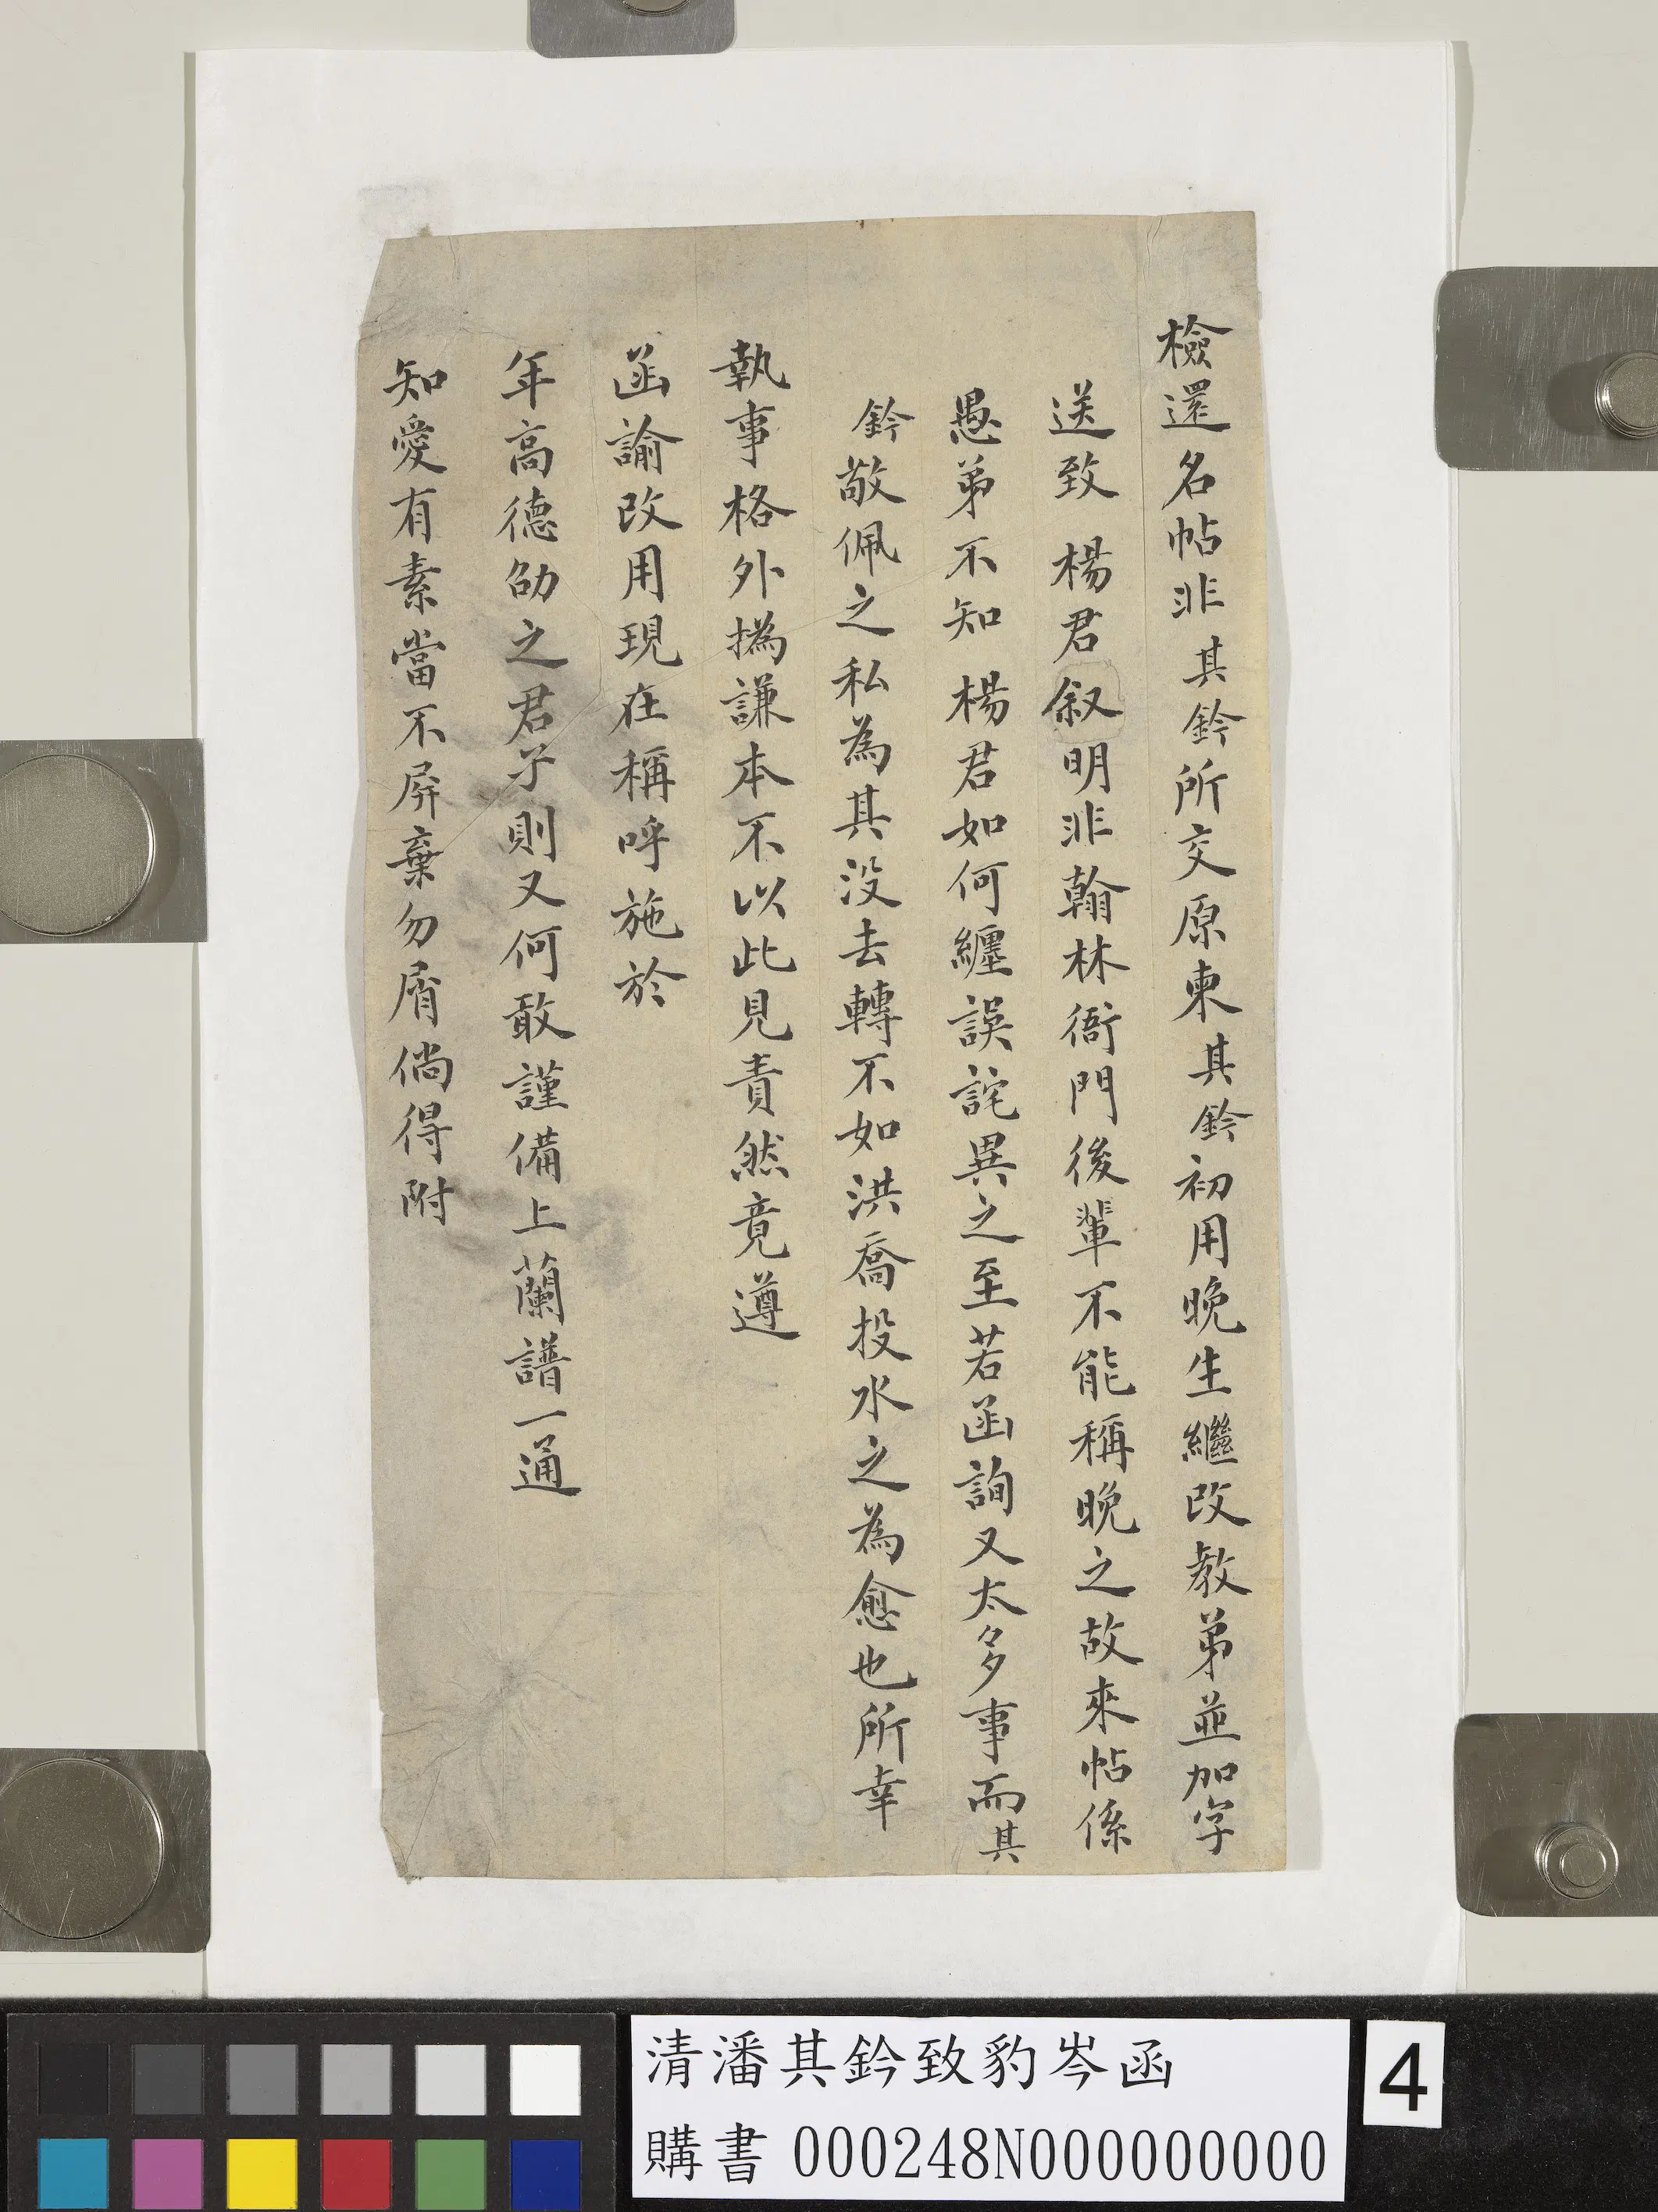 檢還名帖非其鈐所交原柬其鈐初用晚生繼改教弟並加字
送致 楊君叙明非翰林衙門後輩不能稱晚之故來帖係
愚弟不知 楊君如何纏誤詫異之至若函詢又太多事而其
鈐敬佩之私為其沒去轉不如洪喬投水之為愈也所幸
執事格外撝謙本不以此見責然竟遵
函諭改用現在稱呼施於
年高德劭之君子則又何敢謹備上蘭譜一通
知愛有素當不屏棄勿屑倘得附
清潘其鈐致豹岑函
購書 000248N000000000
4